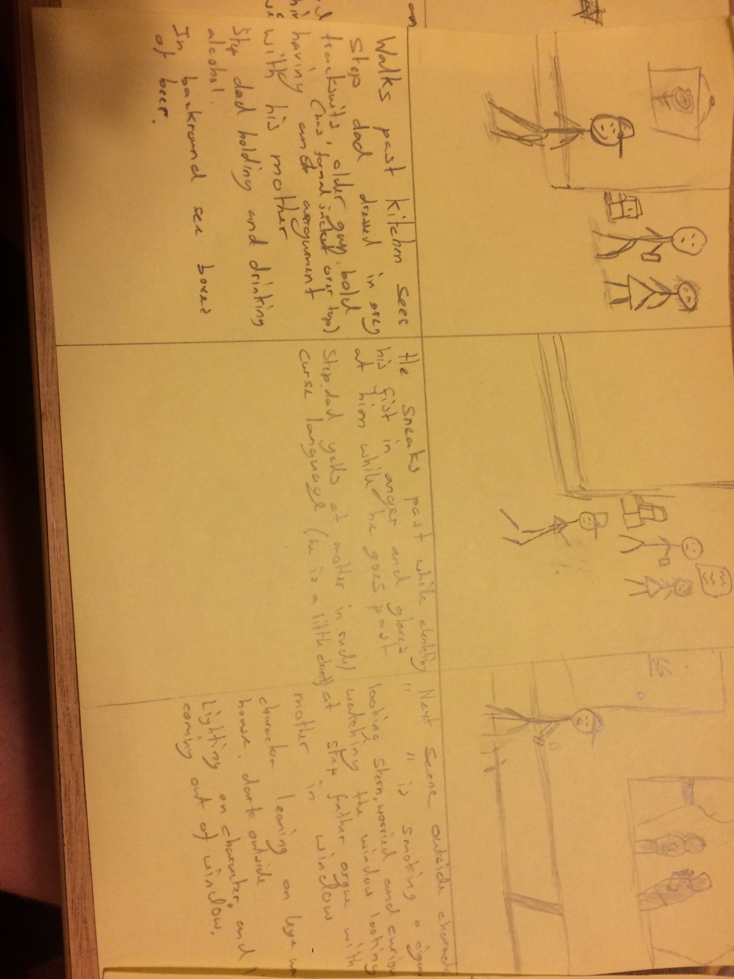 Walks past kitchen sees
Step dad dressed in grey
tracksuits, older guy, bald
(has formal jacket over top)
having an argument
with his mother
Step dad holding and drinking
alcohol.
In backround see boxes
of beer.
He sneaks past while clenching
his fist in anger and glares
at him while he goes past
Step dad yells at mother in rude/
curse language (he is a little drunk)
Next scene outside
" " is smoking a
looking stern, worried and
watching the window looking
at step father argue with
mother in window
character leaning on
house. dark outside
Lighting on character, and
coming out of window.
66